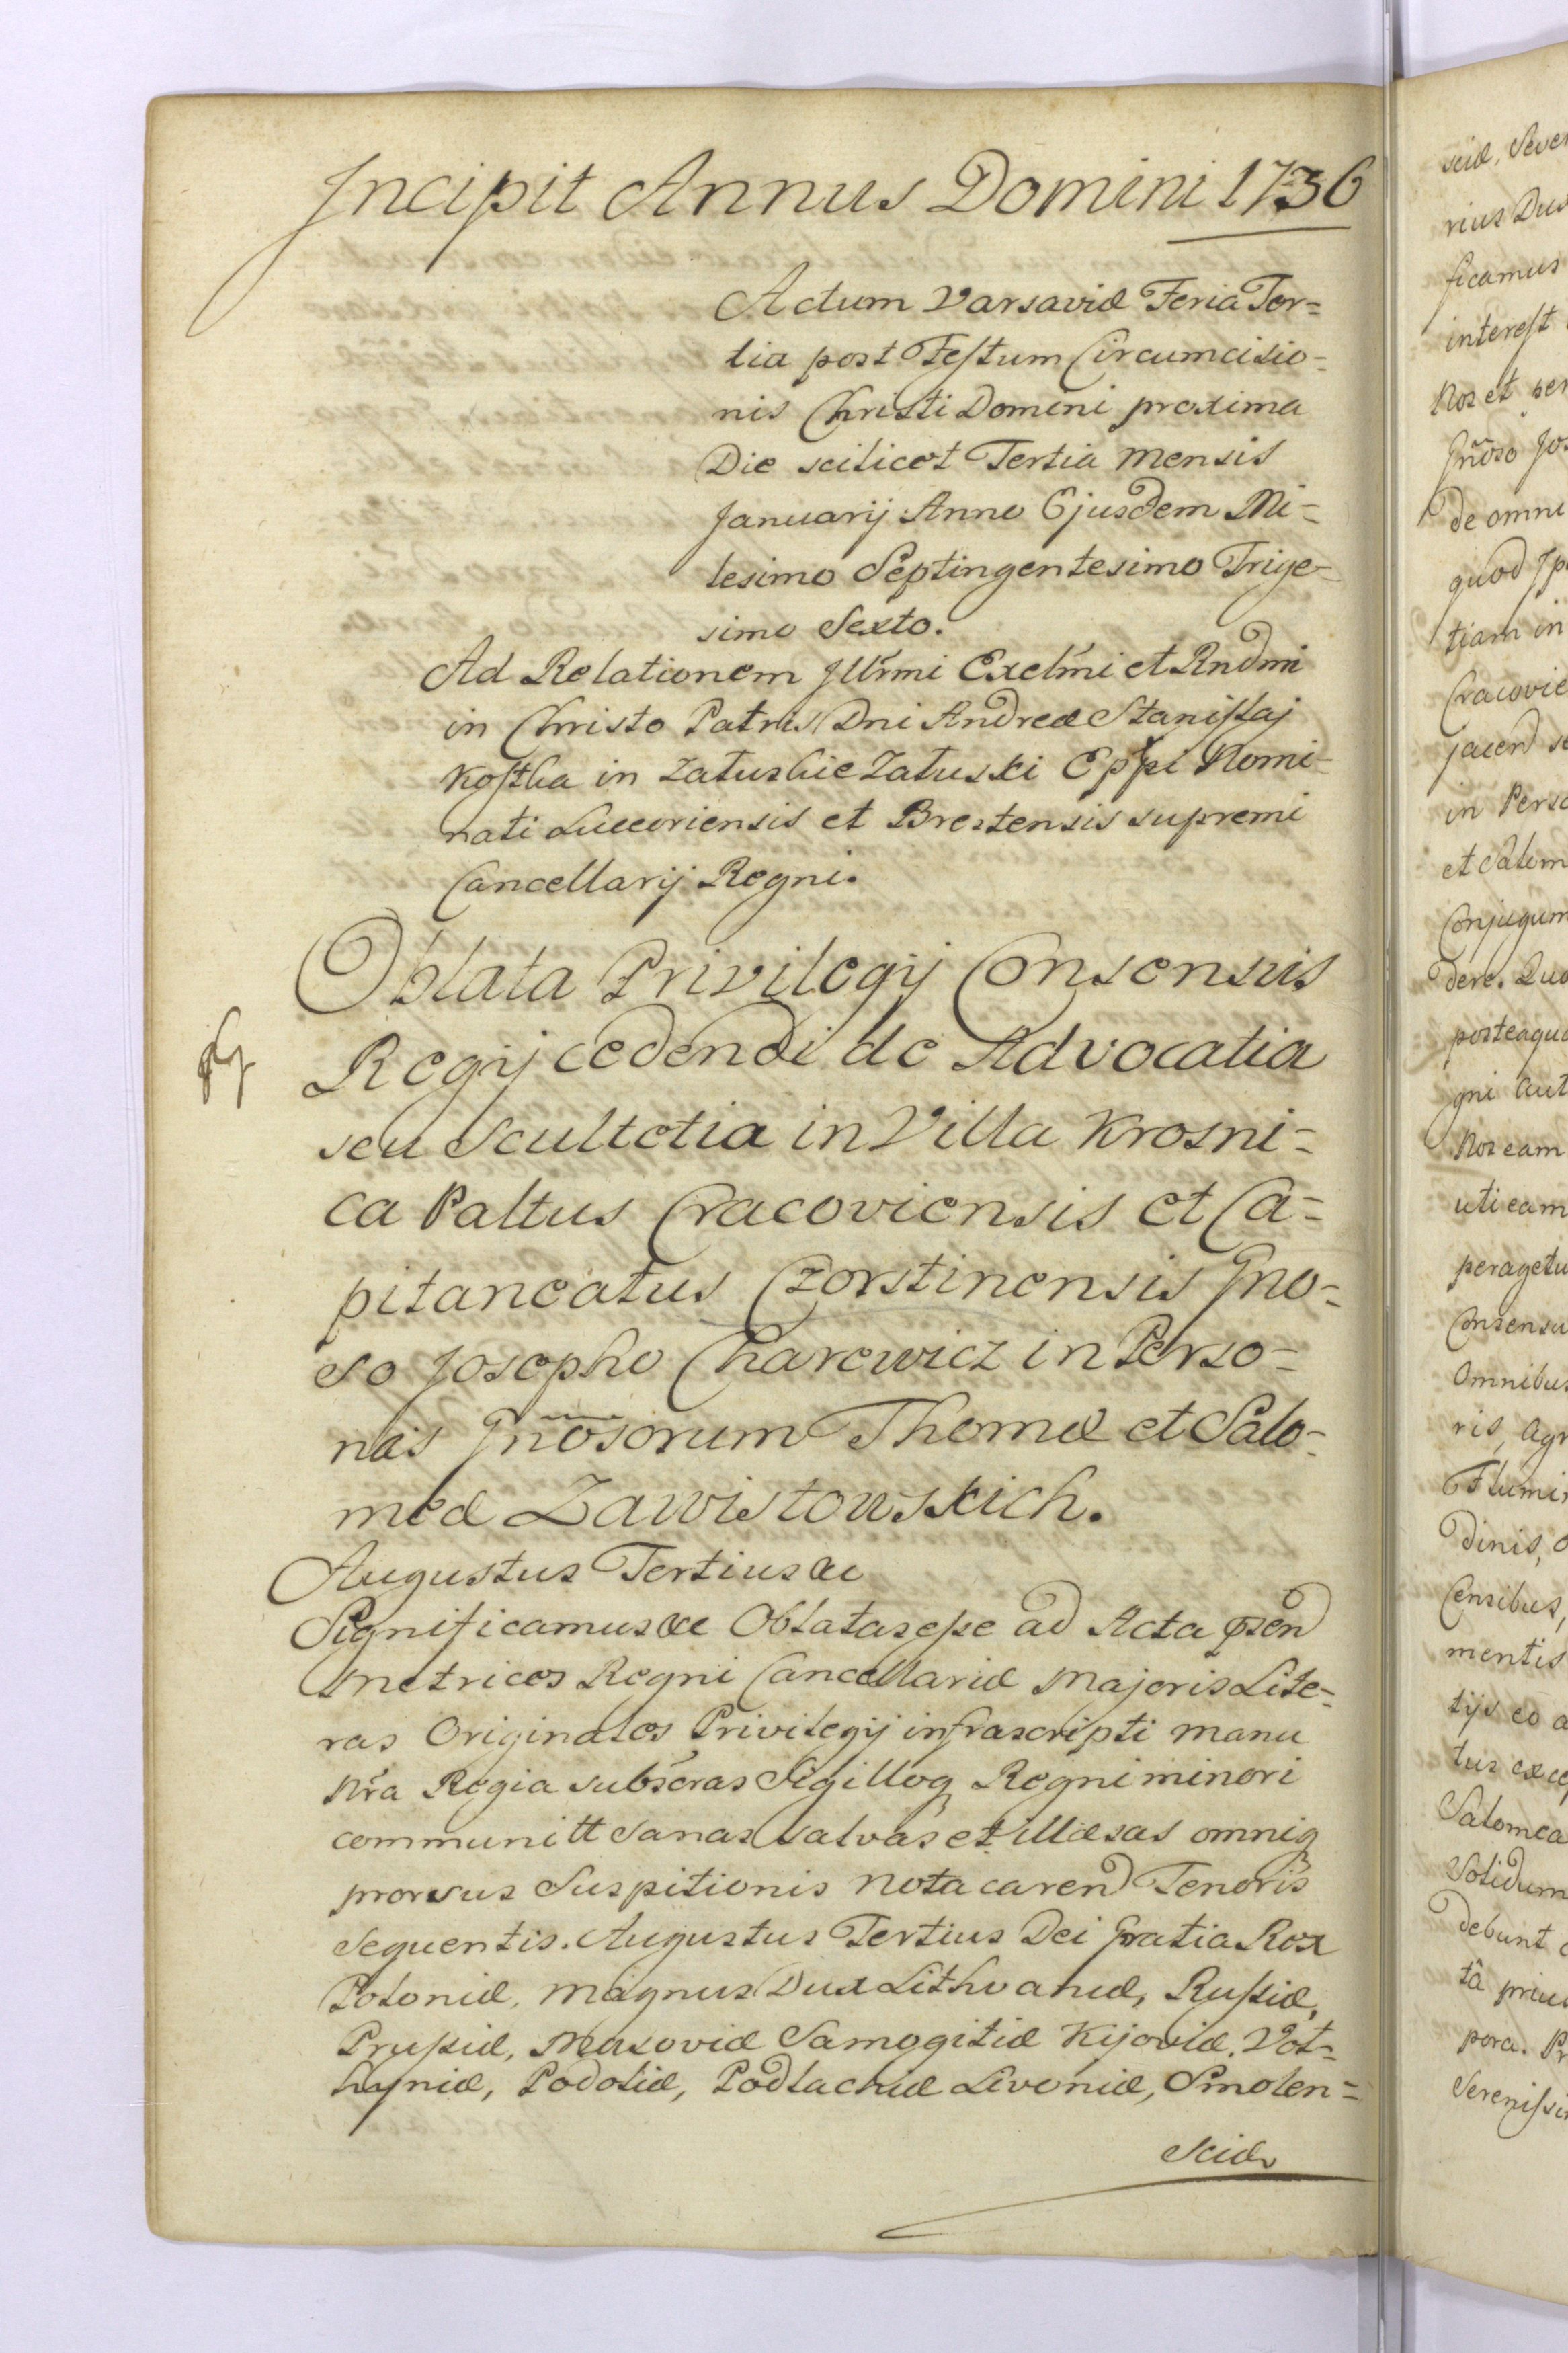 Incipit Annus Domini 1736
Actum Varsaviæ Feria Ter=
tia post Festum Circumcisio=
nis Christi Domini proxima
Die scilicet Tertia Mensis
Januarij Anno Ejusdem Mi=
lesimo Septingentesimo Trige=
simo Sexto.
Ad Relationem Illrmi Excelmi et Rndmi
in Christo Patris Dni Andreæ Stanislaj
Kostka in Zaluskie Zaluski Eppi Nomi=
nati Lucoriensis et Brestensis supremi
Cancellarij Regni.
Oblata Privilegij Consensus
Regij cedendi de Advocatia
seu Scultetia in Villa Krosni=
ca Palttus Cracoviensis et Ca=
pitaneatus Czorstinensis Gno=
so Josepho Charewicz in Perso=
nas Gnosorum Thomæ et Salo=
meæ Zawistowskich.
Augustus Tertius &c
Significamus &c Oblatas esse ad Acta præsen
Metrices Regni Cancellariæ Majoris Lite=
ras Originales Privilegij infrascripti manu
Nra Regia subscras Sigilloq Regni minori
communitt sanas salvas et illæsas omniq
prorsus Suspitionis nota caren Tenoris
sequentis. Augustus Tertius Dei Gratia Rex
Poloniæ, Magnus Dux Lithvaniæ, Russiæ,
Prussiæ, Masoviæ Samogitiæ Kijoviæ, Vol=
hyniæ, Podoliæ, Podlachiæ Livoniæ, Smolen=
sciæ
sciæ, Seve
rius Dux
ficamus
interest
Nos et per
Gnoso Jos
de omni
quod Ip
tiam in
Cracovie
jacen
in Perso
et Salom
Conjugum
dere. Quo
posteaqu
gni aut
Nos eam
uti eam
peragetu
Consensu
Omnibus
ris, agr
Flumi
dinis,
Censibus,
mentis
tijs eo a
tus excep
Salomea
solidum
debunt
ta prius
pora. Pr
Serenissi